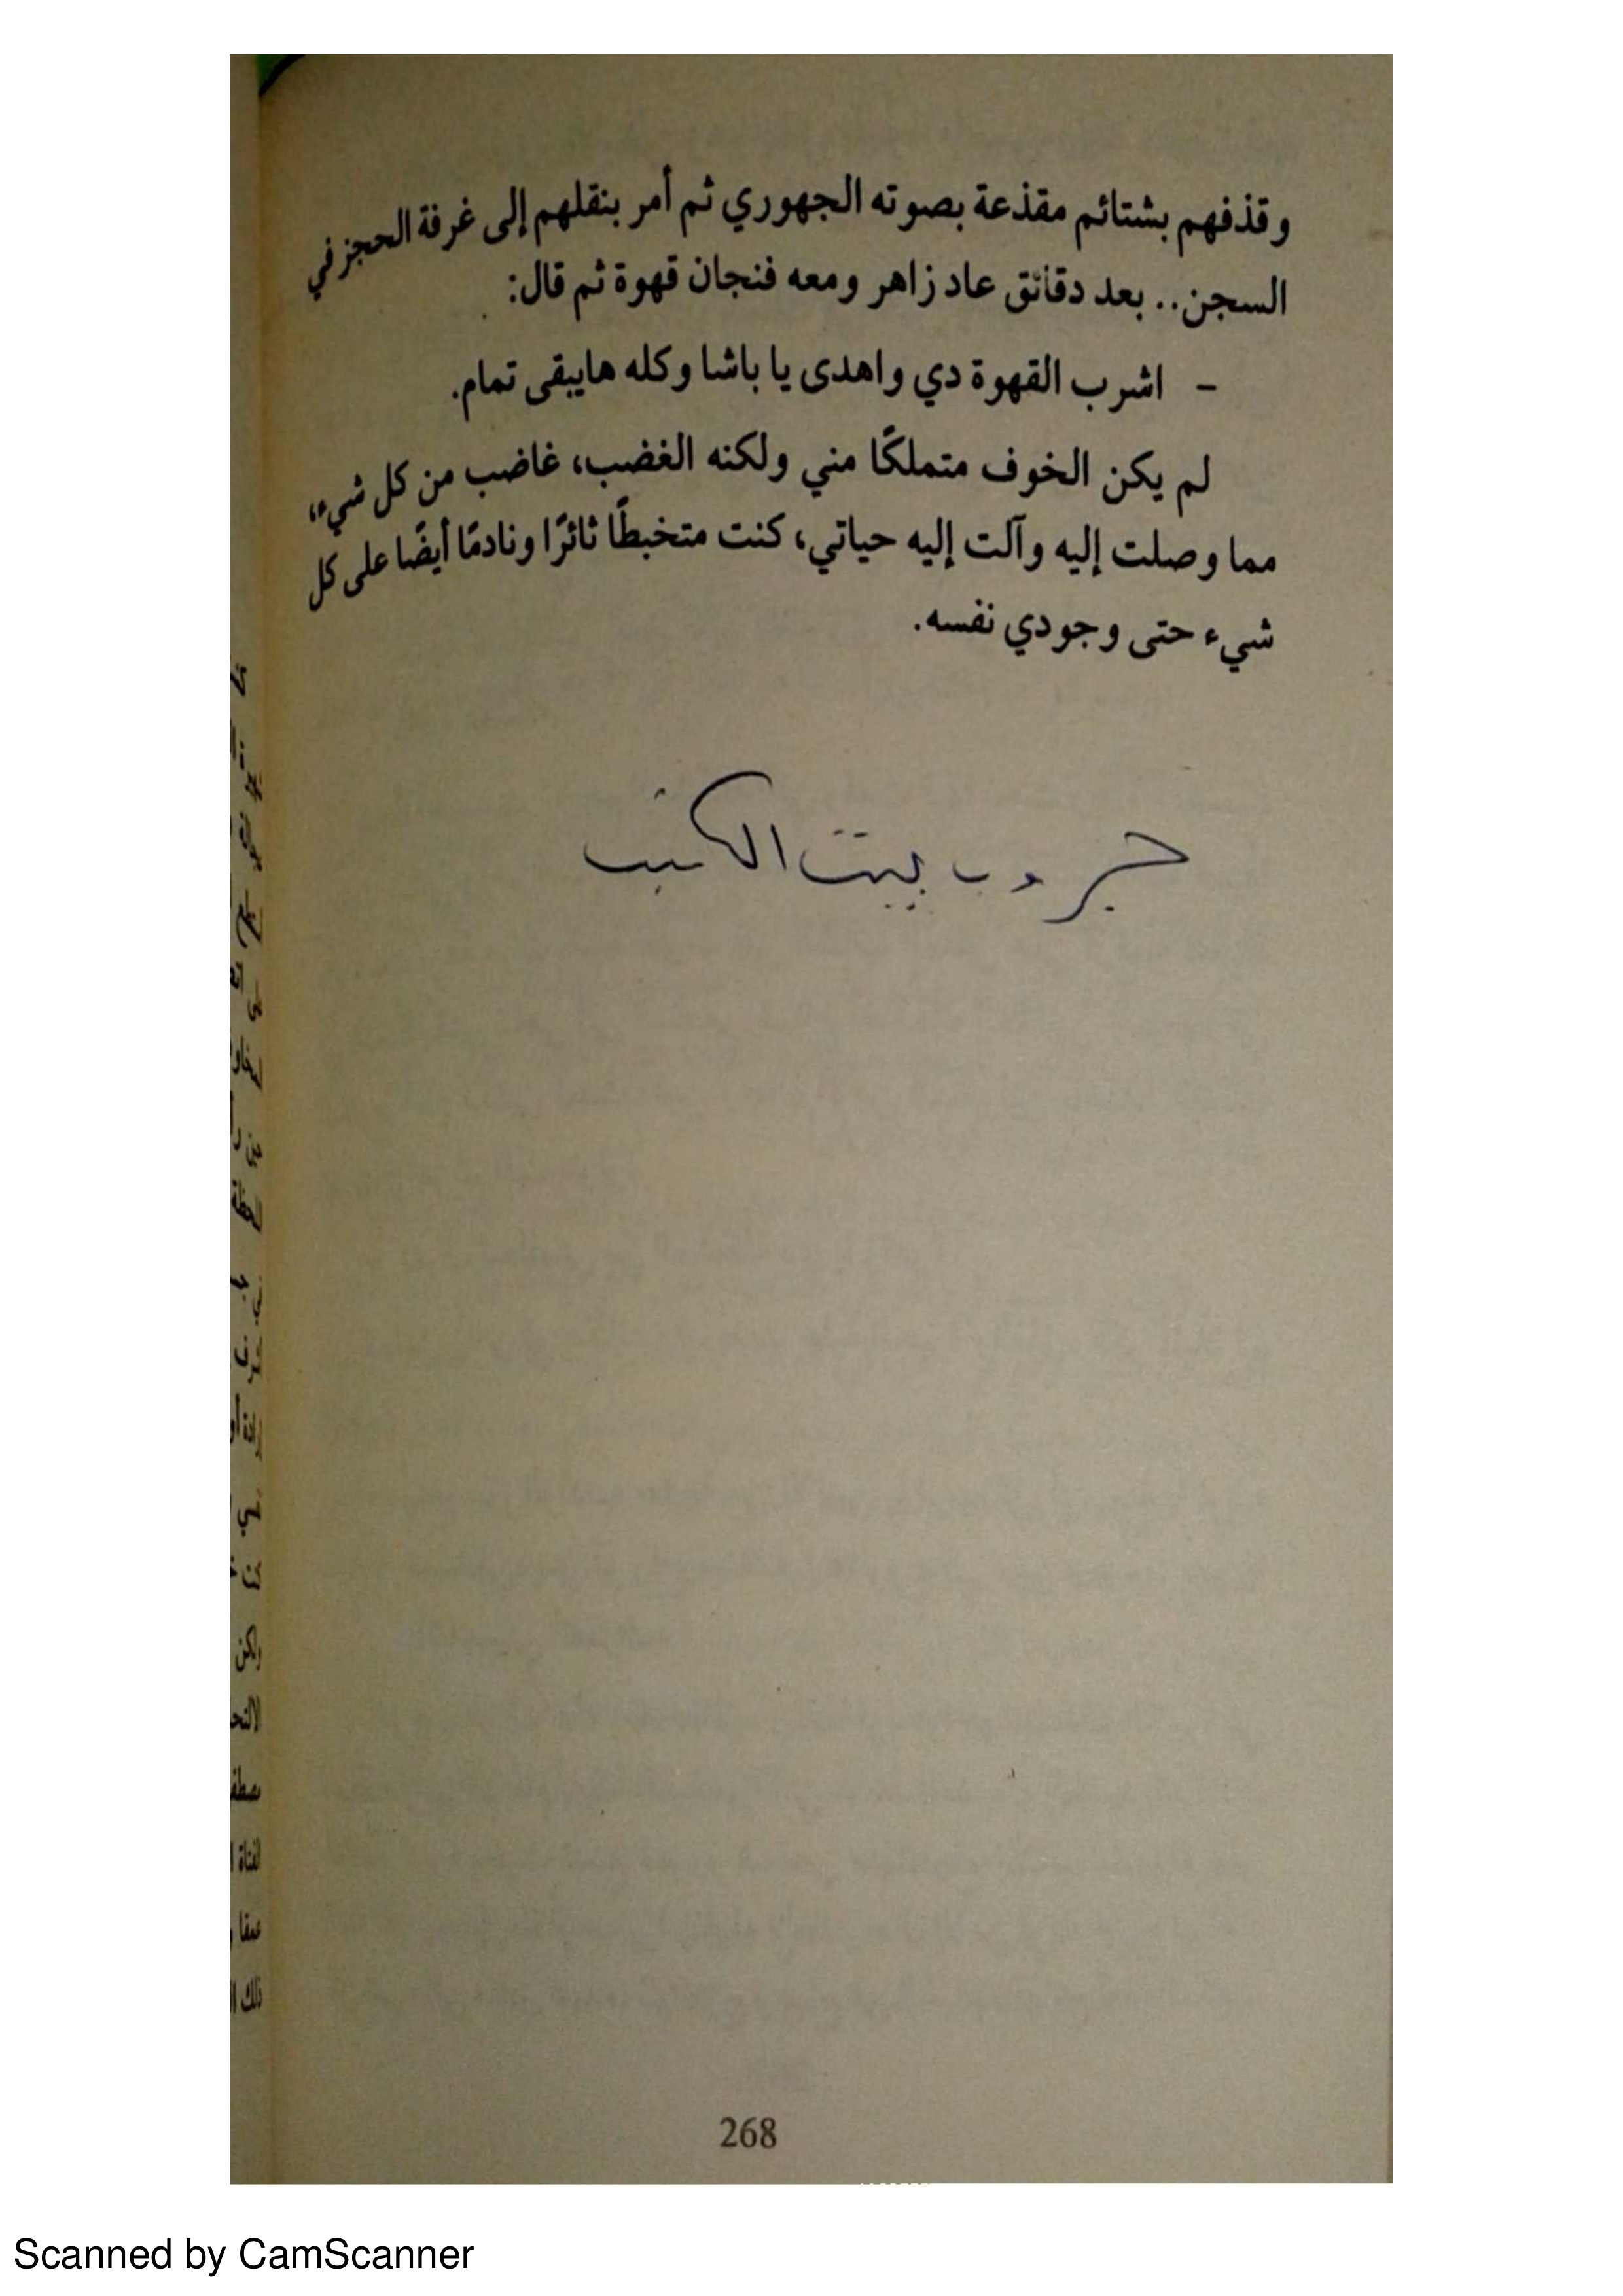 وقذفهم بشتائم مقذعة بصوته الجهوري ثم أمر بنقلهم إلى غرفة الحجز في
السجن.. بعد دقائق عاد زاهر ومعه فنجان قهوة ثم قال:
- اشرب القهوة دي واهدى يا باشا وكله هايبقى تمام.
لم يكن الخوف متملكًا مني ولكنه الغضب، غاضب من كل شيء،
مما وصلت إليه وآلت إليه حياتي، كنت متخبطًا ثائرًا ونادمًا أيضًا على كل
شيء حتى وجودي نفسه.
جروب بيت الكتب
268
Scanned by CamScanner